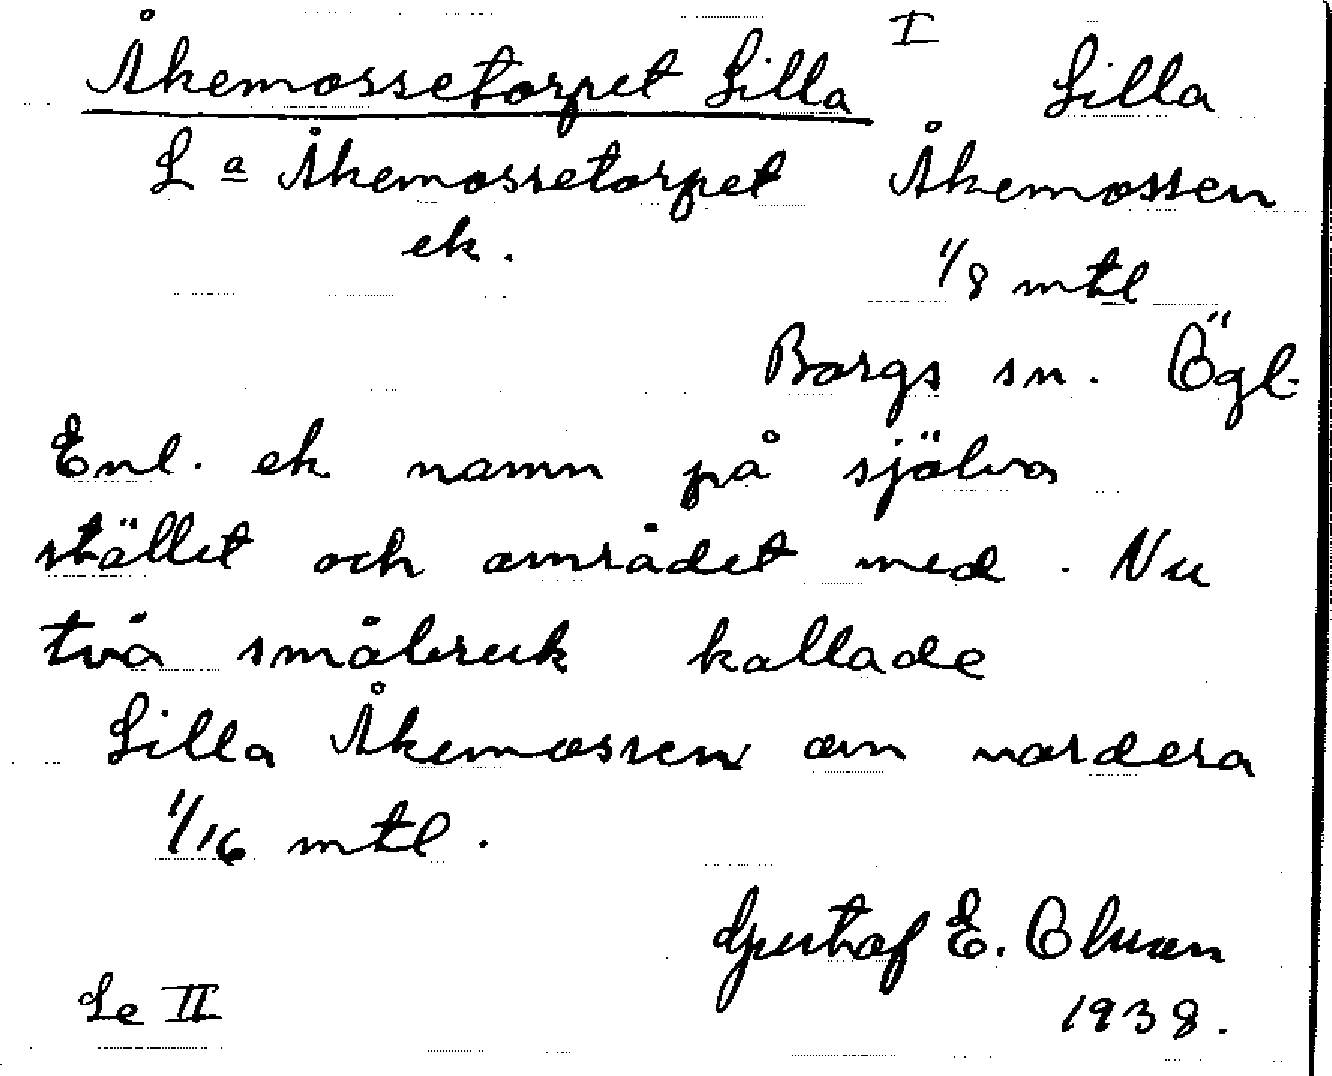 Åkemossetorpet Lilla I Lilla
Lª Åkemossetorpet Åkemossen
ek. 1/8 mtl
Borgs sn. Ögl.
Enl. ek namn på själva
stället och området med. Nu
två småbruk kallade
Lilla Åkemossen om vardera
1/16 mtl.
Gustaf E. Olsson
Se II 1938.